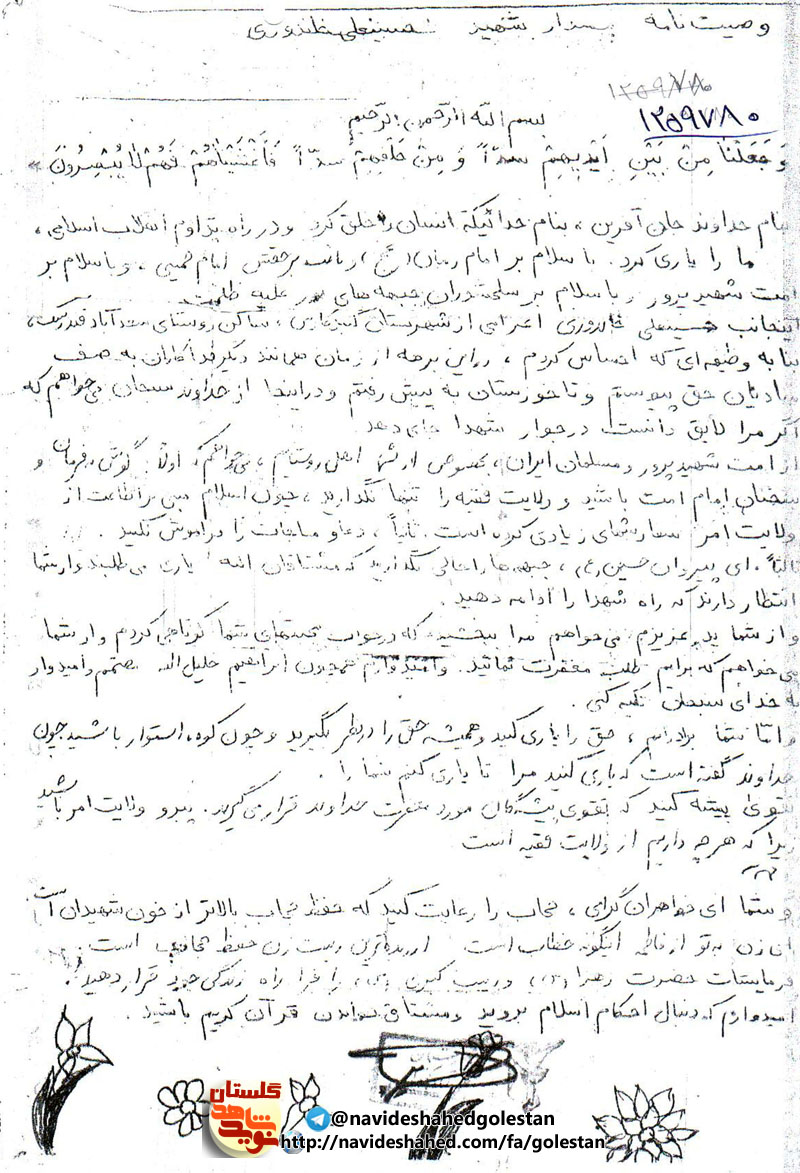 وصیت نامه پاسدار شهید حسینعلی قلندوری
۱۲۵۹۷۸۰
۱۲۵۹۷۸۰
بسم الله الرحمن الرحیم
وَ جَعَلْنَا مِنْ بَیْنِ اَیْدِیهِمْ سَدّاً وَ مِنْ خَلْفِهِمْ سَدّاً فَاَغْشَیْنَاهُمْ فَهُمْ لَا یُبْصِرُونَ »
بنام خداوند جان آفرین ، بنام خدائیکه انسان را خلق کرد و در راه تداوم انقلاب اسلامی ،
ما را یاری کرد . با سلام بر امام زمان (عج) و نائب برحقش امام خمینی ، و با سلام بر
امت شهید پرور و با سلام بر سلحشوران جبهه های نور علیه ظلمت
اینجانب حسینعلی اعزامی از شهرستان گنبد کاوس ، ساکن روستای
بنا به وظیفه ای که احساس کردم ، در این برهه از زمان همانند دیگر فداکاران به صف
منادیان حق پیوستم و تا خوزستان به پیش رفتم و در اینجا از خداوند سبحان می خواهم که
اگر مرا لایق دانست در جوار شهدا جای دهد
از امت شهید پرور و مسلمان ایران ، بخصوص از شما اهل روستایم ، می خواهم که اولاً گوش بفرمان و
سخنان امام امت باشید و ولایت فقیه را تنها نگذارید ، چون اسلام مبنی بر اطاعت از
ولایت امر سفارشهای زیادی کرده است . ثانیاً ، دعا و مناجات را فراموش نکنید .
ثالثاً ، ای پیروان حسین (ع) ، جبهه ها را خالی نگذارید که مشتاقان الله یارت می طلبند و از شما
انتظار دارند که راه شهدا را ادامه دهید .
و از شما پدر عزیزم می خواهم مرا ببخشید که در جواب محبتهای شما کوتاهی کردم و از شما
می خواهم که برایم طلب مغفرت نمائید . و امیدوارم همچون ابراهیم خلیل الله مصمم و امیدوار
به خدای سبحان تکیه کنی .
و امّا شما برادرانم ، حق را یاری کنید و همیشه حق را در نظر بگیرید و چون کوه ، استوار باشید چون
خداوند گفته است که یاری کنید مرا تا یاری کنم شما را .
تقوی پیشه کنید که تقوی پیشگان مورد مغفرت خداوند قرار می گیرند . پیرو ولایت امر باشید
زیرا که هر چه داریم از ولایت فقیه است
و شما ای خواهران گرامی ، حجاب را رعایت کنید که حفظ حجاب بالاتر از خون شهیدان است
ای زن به تو از فاطمه اینگونه خطاب است ارزنده ترین زینت زن حفظ حجاب است .
فرمایشات حضرت زهرا (س) و زینب کبری (س) را فرا راه زندگی خود قرار دهید .
امیدوارم که دنبال احکام اسلام بروید و مشتاق خواندن قرآن کریم باشید .
گلستان
نوید شاهد
@navideshahedgolestan
http://navideshahed.com/fa/golestan